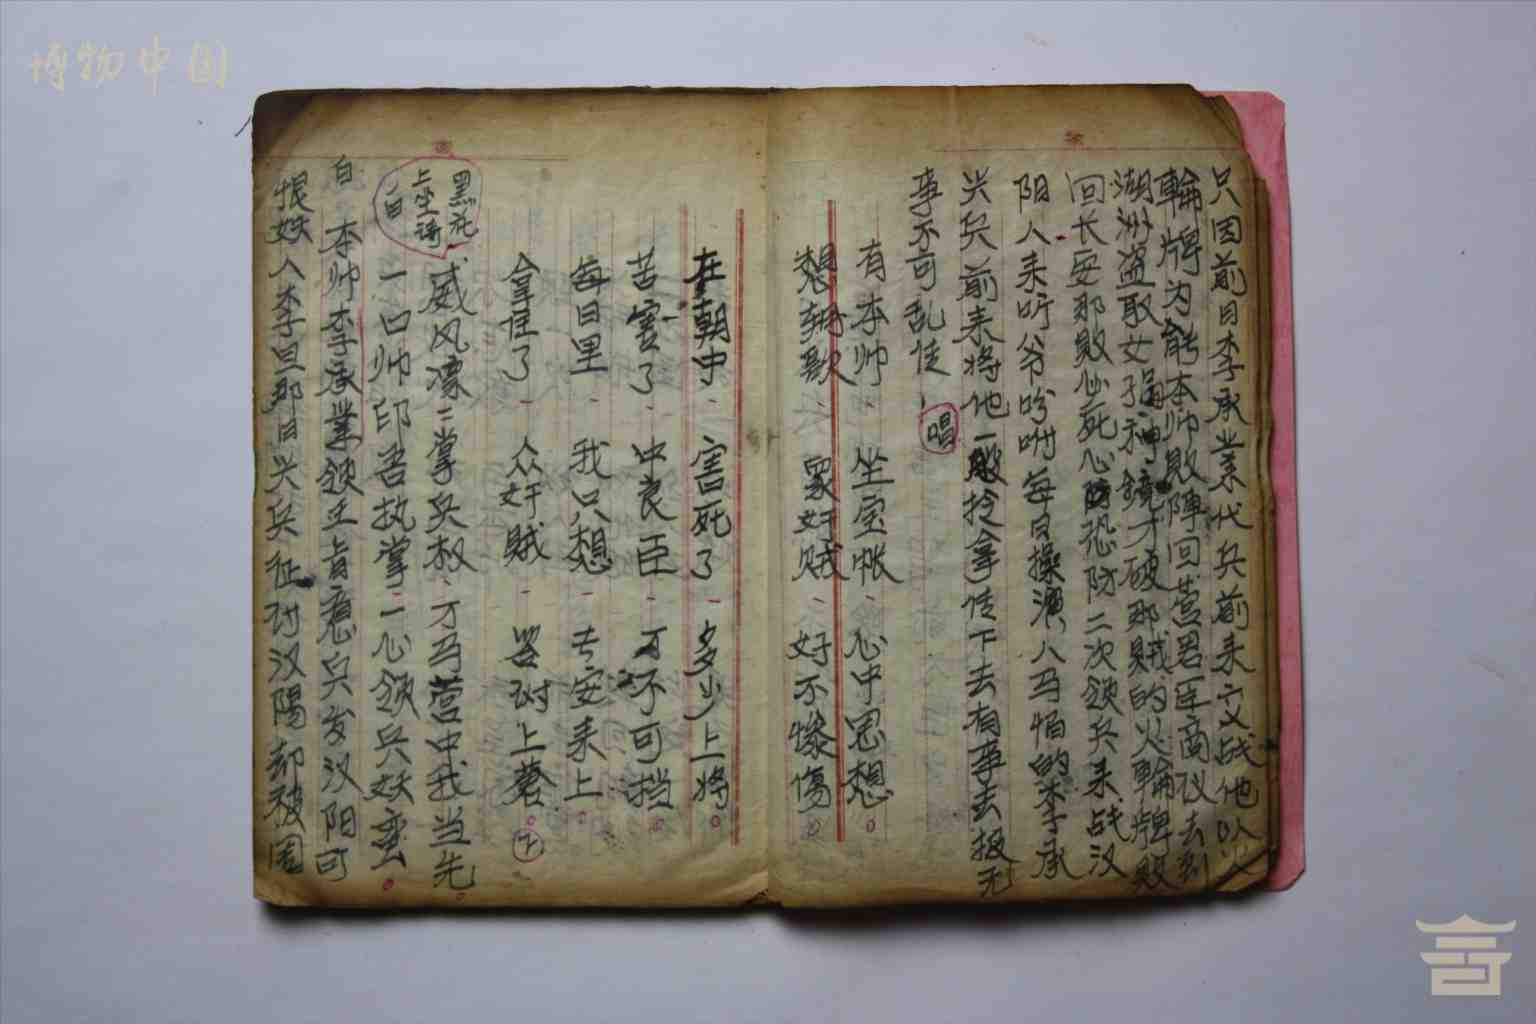 博物中国
只因前日李承业代兵前来交战他以火
輪牌为能本帅败陣回营君臣商议去到
湖洲盗取女娲神鏡才破那贼的火輪牌败
回长安那败必死心恐防二次领兵来战汉
阳人来听爷吩咐每日操演人马怕的李承
兴兵前来将他一般拴拿住下去有事去报无
事不可乱住 唱
有本帅 坐宝帐 心中思想
想朝歌 眾奸贼 好不惨傷
在朝中 害死了 多少上将
苦害了 中良臣 万不可挡
每日里 我只想 长安来上
拿住了 众奸贼 苔谢上蒼 下
黑花
上坐诗
白
威风凛二掌兵权 万马营中我当先
一口帅印吾执掌 一心领兵灭蛮
白 本帅李承業领王旨意兵发汉阳可
恨妖人李旦那日兴兵征讨汉陽却被困